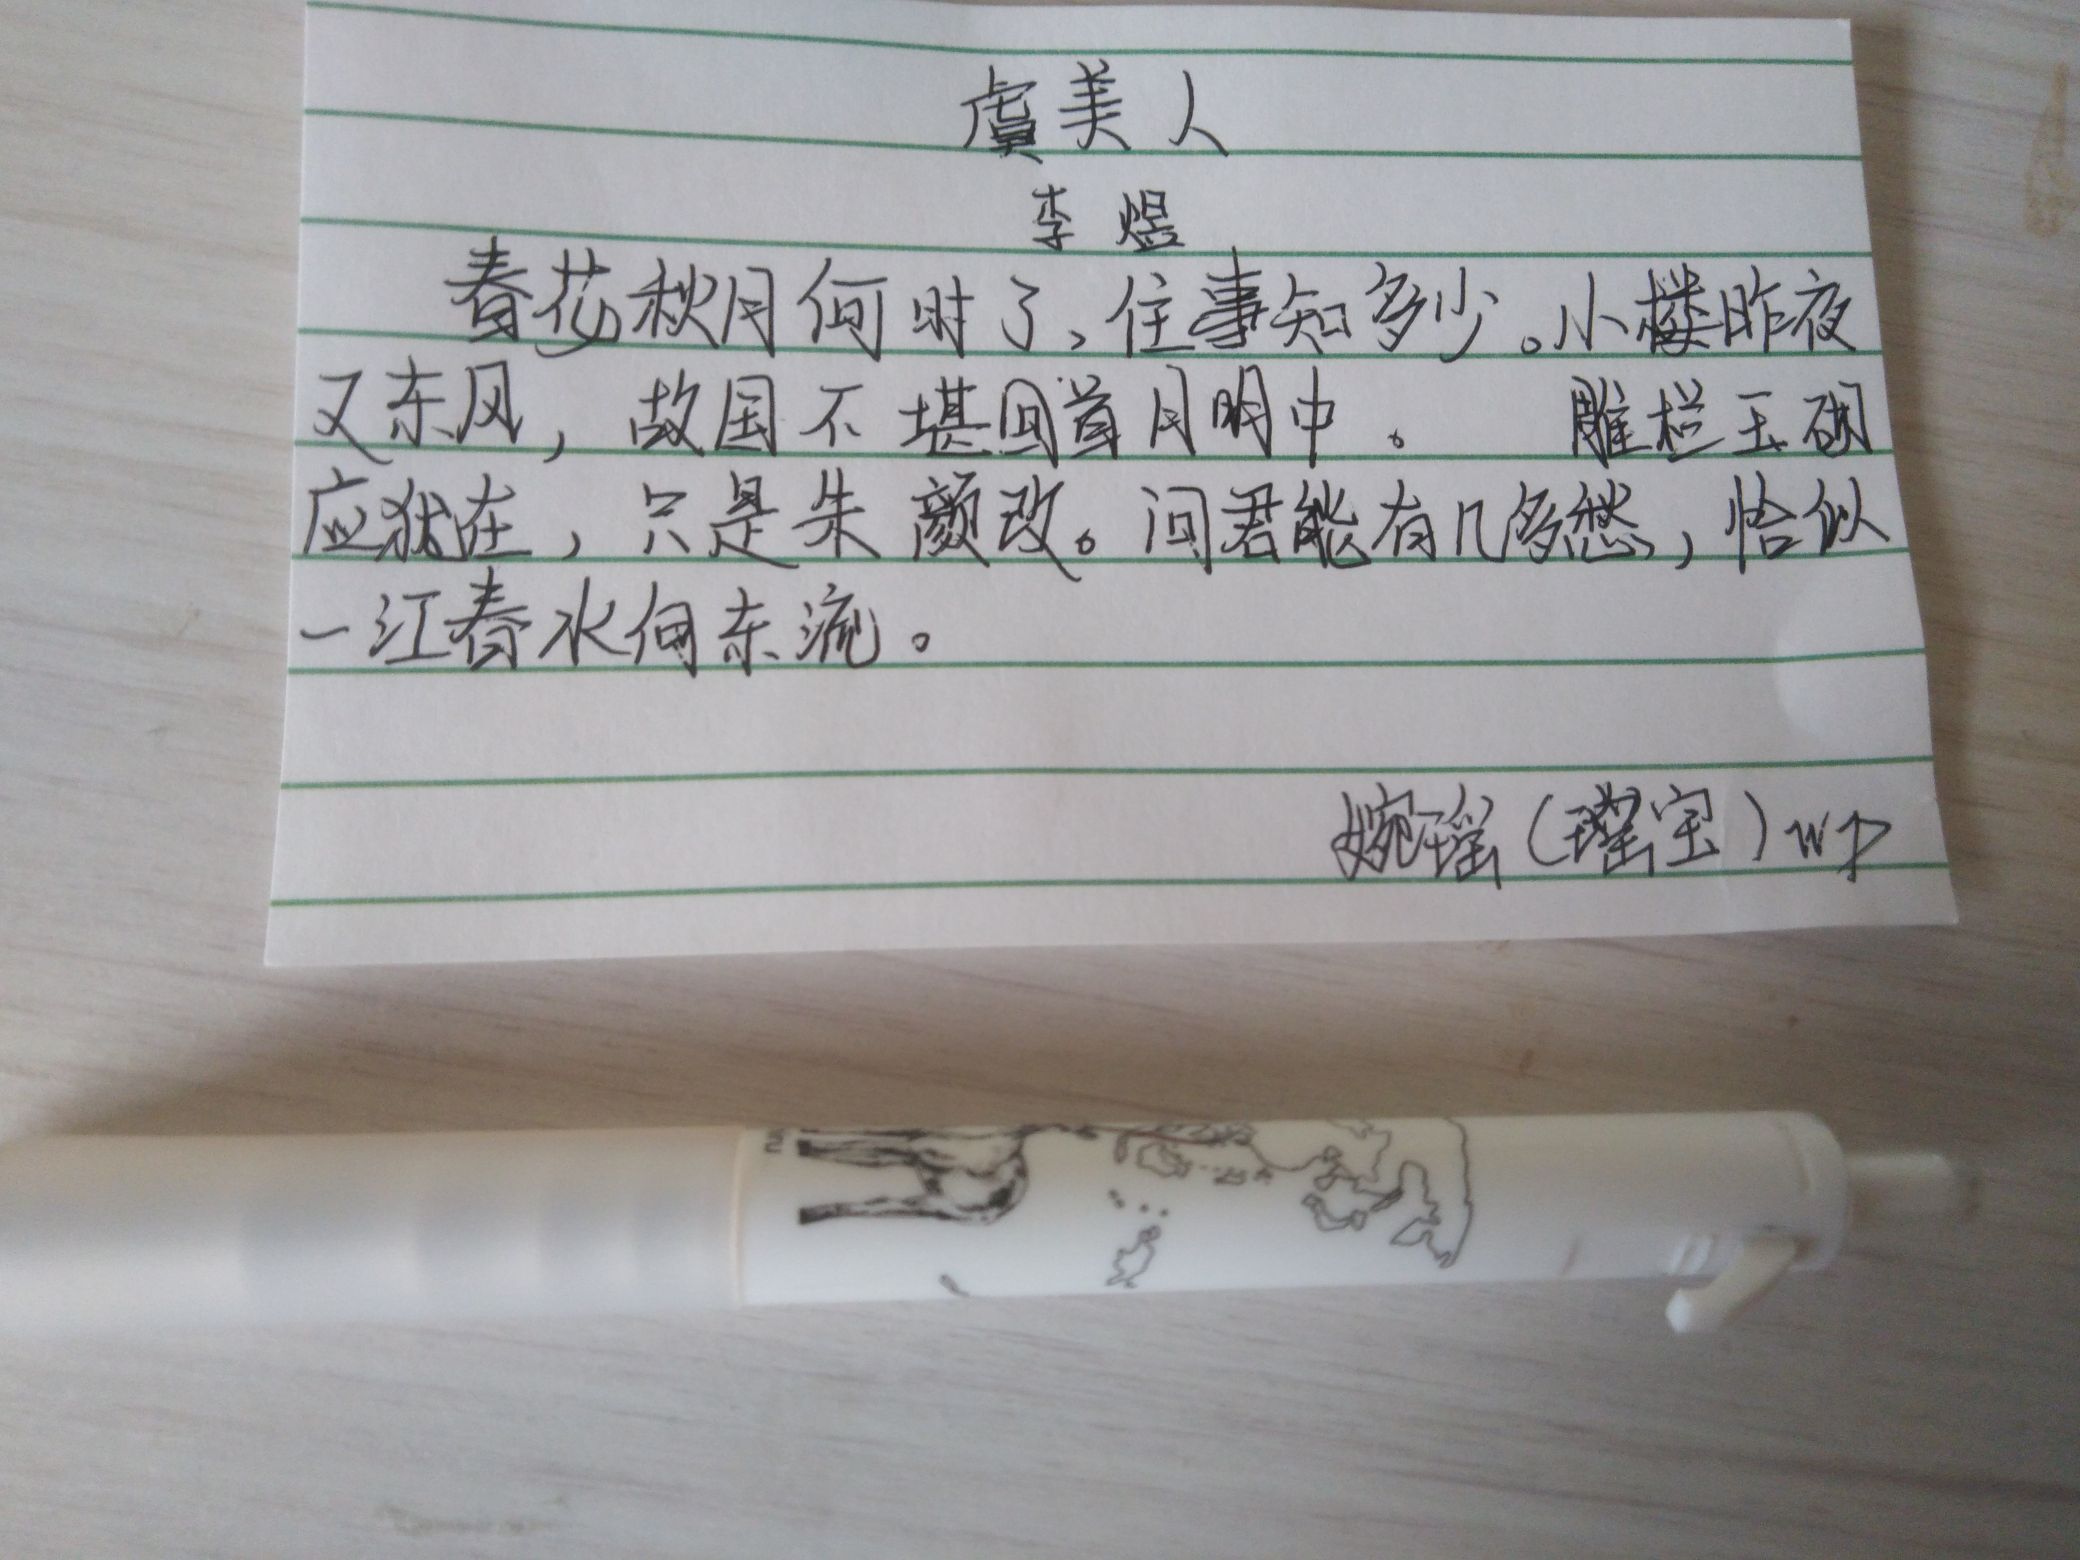 虞美人
李煜
春花秋月何时了,往事知多少。小楼昨夜
又东风,故国不堪回首月明中。 雕栏玉砌
应犹在,只是朱颜改。问君能有几多愁,恰似
一江春水向东流。
婉瑶(瑶宝)